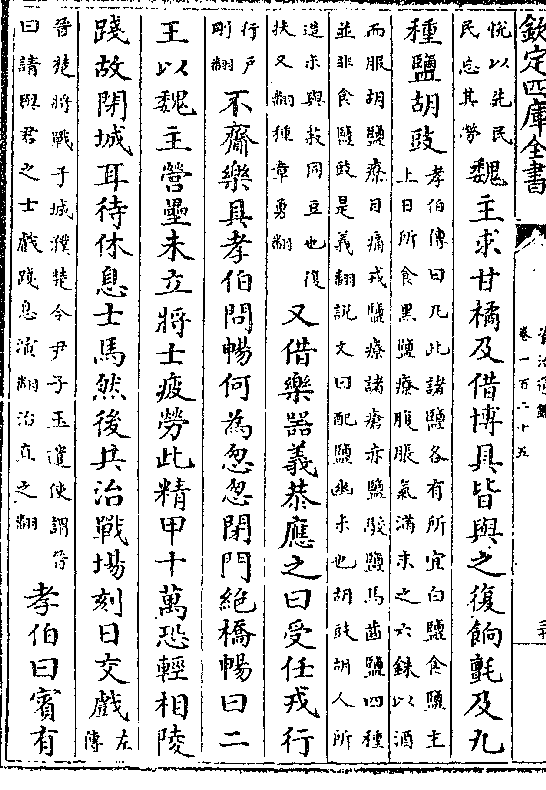 欽定四庫全書
資治通鑑
卷一百二十五
悅以先民
民忘其勞
魏主求甘橘及借博具皆與之復餉氈及九
種鹽胡豉
孝伯傳曰凡此諸鹽各有所宜白鹽食鹽主
上自所食黑鹽療腹脹氣滿末之六銖以酒
而服胡鹽療目痛戎鹽療諸瘡赤鹽駁鹽馬齒鹽四種
並非食鹽豉是義翻說文曰配鹽幽尗也胡豉胡人所
造尗與菽同豆也復
扶又翻種章勇翻
又借樂器義恭應之曰受任戎行
行戶
剛翻
不齎樂具孝伯問暢何為怱怱閉門絶橋暢曰二
王以魏主營壘未立將士疲勞此精甲十萬恐輕相陵
踐故閉城耳待休息士馬然後共治戰場刻日交戲
左
傳
晉楚將戰于城濮楚令尹子玉遣使謂晉
曰請與君之士戲踐息演翻治直之翻
孝伯曰賓有